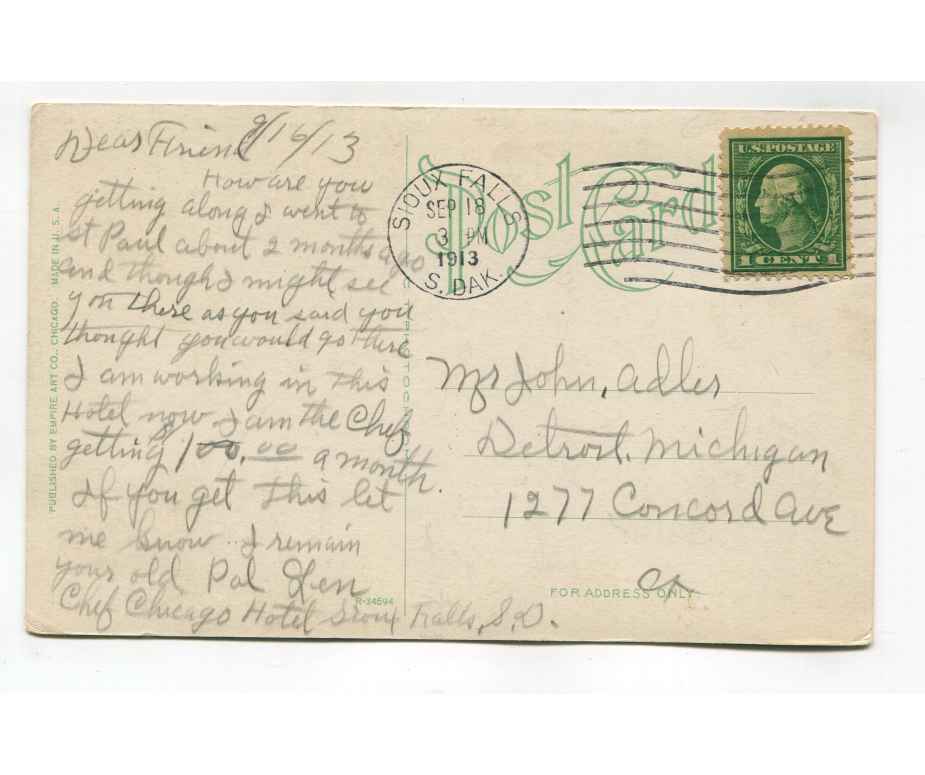 Dear Friend 9/16/13
How are you
getting along I went to
St Paul about 2 months ago
and though I might see
you there as you said you
thought you would go there
I am working in this
Hotel now I am the Chef
getting 100.00 a month.
If you get this let
me know. I remain
your old Pal Ken
Chef Chicago Hotel Sioux Falls, S.D.
PUBLISHED BY EMPIRE ART CO., CHICAGO. MADE IN U.S.A.
Post Card
SIOUX FALLS
SEP 18
3 PM
1913
S. DAK.
U.S. POSTAGE
1 CENT 1
Mr John, Adler
Detroit. Michigan
1277 Concord Ave
FOR ADDRESS ONLY
R-34594